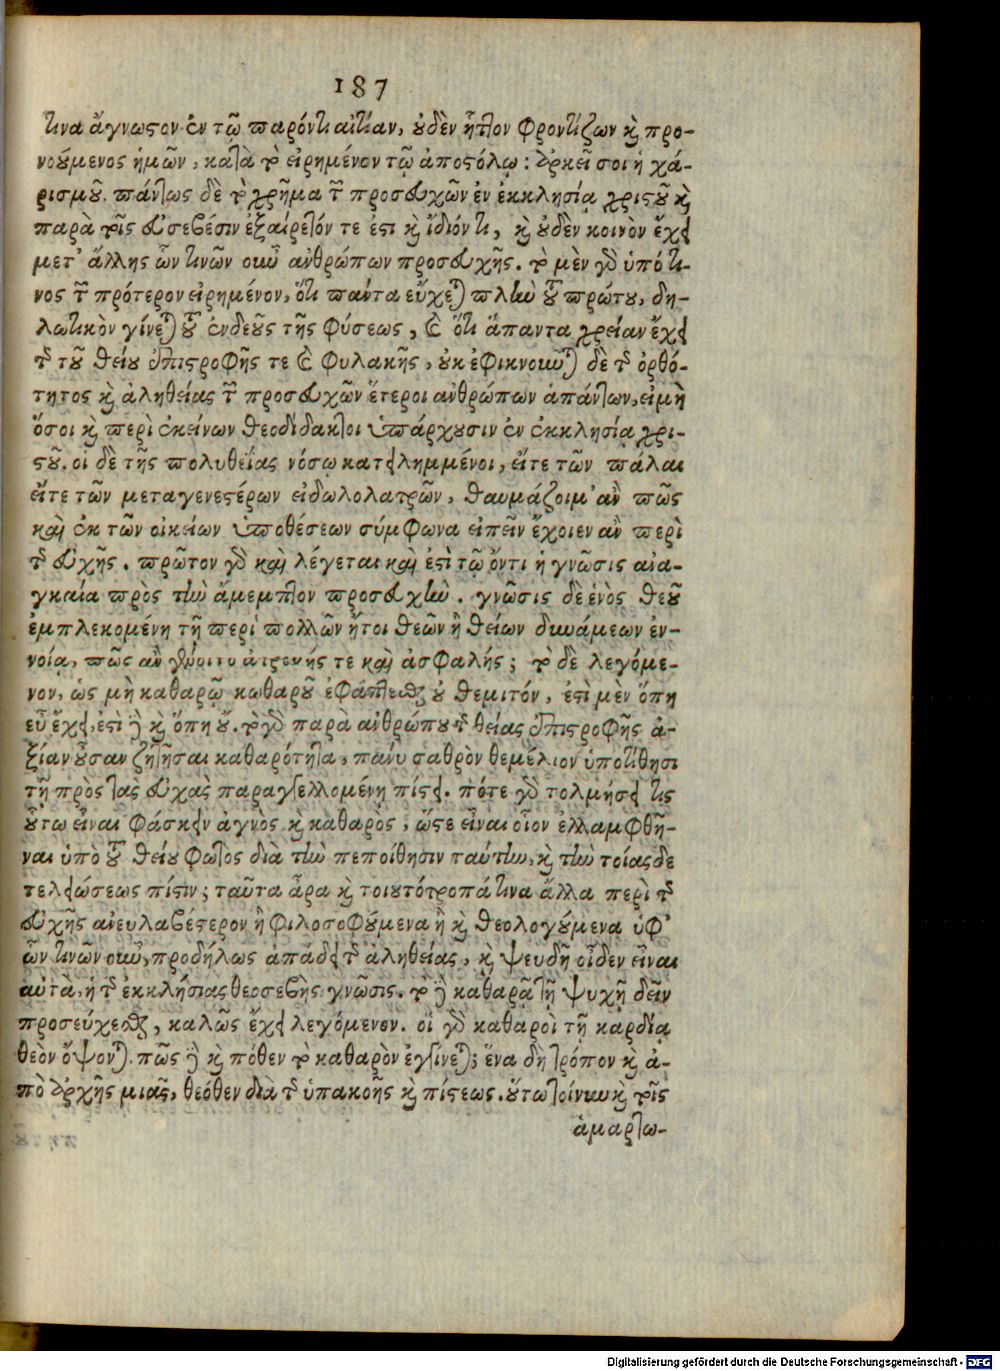 187
τινα ἄγνωστον ἐν τῷ παρόντι αἰτίαν, οὐδὲν ἧττον φροντίζων καὶ προ-
νούμενος ἡμῶν, κατὰ τὸ εἰρημένον τῷ ἀποστόλῳ: ἀρκεῖ σοι ἡ χά-
ρις μοῦ. πάντως δὲ τὸ χρῆμα τῶν προσευχῶν ἐν ἐκκλησίᾳ χριστοῦ καὶ
παρὰ τοῖς εὐσεβέσιν ἐξαίρετόν τε ἐστι καὶ ἴδιόν τι, καὶ οὐδὲν κοινὸν ἔχει
μετ' ἄλλης ὧν τινῶν οὖν ἀνθρώπων προσευχῆς. τὸ μὲν γὰρ ὑπό τι-
νος τῶν πρότερον εἰρημένον, ὅτι πάντα εὔχεται πλὴν τοῦ πρώτου, δη-
λωτικὸν γίνεται τοῦ ἐνδεοῦς τῆς φύσεως, καὶ ὅτι ἅπαντα χρείαν ἔχει
τῆς τοῦ θείου ἐπιστροφῆς τε καὶ φυλακῆς, οὐκ ἐφικνοῦνται δὲ τῆς ὀρθό-
τητος καὶ ἀληθείας τῶν προσευχῶν ἕτεροι ἀνθρώπων ἁπάντων, εἰ μὴ
ὅσοι καὶ περὶ ἐκείνων θεοδίδακτοι ὑπάρχουσιν ἐν ἐκκλησίᾳ χρι-
στοῦ. οἱ δὲ τῆς πολυθεΐας νόσῳ κατειλημμένοι, εἴτε τῶν πάλαι
εἴτε τῶν μεταγενεστέρων εἰδωλολατρῶν, θαυμάζοιμ' ἂν πῶς
καὶ ἐκ τῶν οἰκείων ὑποθέσεων σύμφωνα εἰπεῖν ἔχοιεν ἂν περὶ
τῆς εὐχῆς. πρῶτον γὰρ καὶ λέγεται καὶ ἐστὶ τῷ ὄντι ἡ γνῶσις ἀνα-
γκαία πρὸς τὴν ἄμεμπτον προσευχήν. γνῶσις δὲ ἑνὸς θεοῦ
ἐμπλεκομένη τῇ περὶ πολλῶν ἤτοι θεῶν ἢ θείων δυνάμεων ἐν-
νοίᾳ, πῶς ἂν γένοιτο ἀτρεκής τε καὶ ἀσφαλής; τὸ δὲ λεγόμε-
νον, ὡς μὴ καθαρῷ καθαροῦ ἐφάπτεσθαι οὐ θεμιτόν, ἐστὶ μὲν ὅπη
εὖ ἔχει, ἐστὶ δὲ καὶ ὅπη οὔ. τὸ γὰρ παρὰ ἀνθρώπου τῆς θείας ἐπιστροφῆς ἀ-
ξίαν οὖσαν ζητῆσαι καθαρότητα, πάνυ σαθρὸν θεμέλιον ὑποτίθησι
τῇ πρὸς τὰς εὐχὰς παραγγελλομένῃ πίστει. πότε γὰρ τολμήσει τις
οὕτω εἶναι φάσκειν ἁγνὸς καὶ καθαρὸς, ὥστε εἶναι οἷον ἐλλαμφθῆ-
ναι ὑπὸ τοῦ θείου φωτὸς διὰ τὴν πεποίθησιν ταύτην, καὶ τὴν τοίας δε
τελειώσεως πίστιν; ταῦτα ἆρα καὶ τοιουτότροπά τινα ἄλλα περὶ τῆς
εὐχῆς ἀνευλαβέστερον ἢ φιλοσοφούμενα ἢ καὶ θεολογούμενα ὑφ'
ὧν τινῶν οὖν, προδήλως ἀπάδει τῆς ἀληθείας, καὶ ψευδῆ οἶδεν εἶναι
αὐτὰ, ἡ τῆς ἐκκλησίας θεοσεβὴς γνῶσις. τὸ δὲ καθαρᾷ τῇ ψυχῇ δεῖν
προσεύχεσθαι, καλῶς ἔχει λεγόμενον. οἱ γὰρ καθαροὶ τῇ καρδίᾳ
θεὸν ὄψονται. πῶς δὲ καὶ πόθεν τὸ καθαρὸν ἐγγίνεται; ἕνα δὴ τρόπον καὶ ἀ-
πὸ ἀρχῆς μιᾶς, θεόθεν διὰ τῆς ὑπακοῆς καὶ πίστεως. οὕτω τοίνυν καὶ τοῖς
ἁμαρτω-
Digitalisierung gefördert durch die Deutsche Forschungsgemeinschaft - DFG